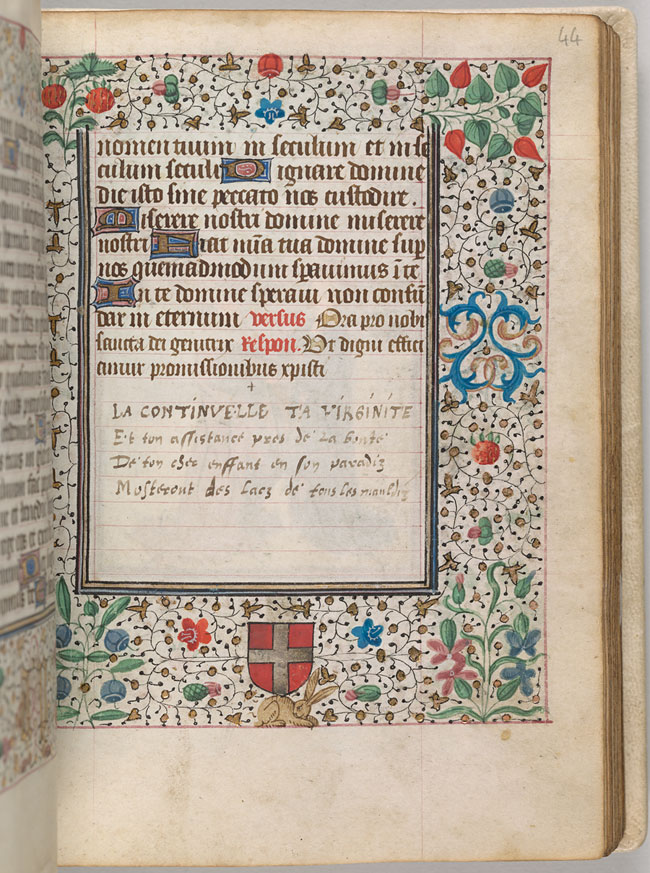 44
nomen tuum in seculum et in se
culum seculi Dignare domine
die isto sine peccato nos custodire.
Miserere nostri domine miserere
nostri Fiat mia tua domine sup
nos quemadmodum speravimus i te
In te domine speravi non confun
dar in eternum versus Ora pro nobis
sancta dei genitrix Respon. Ut digni effici
amur promissionibus xpisti
+
LA CONTINVELLE TA VIRGINITE
Et ton assistance pres de La bonte
De ton cher enffant en son paradiz
Mosteront des Lacz de tous les mauldiz